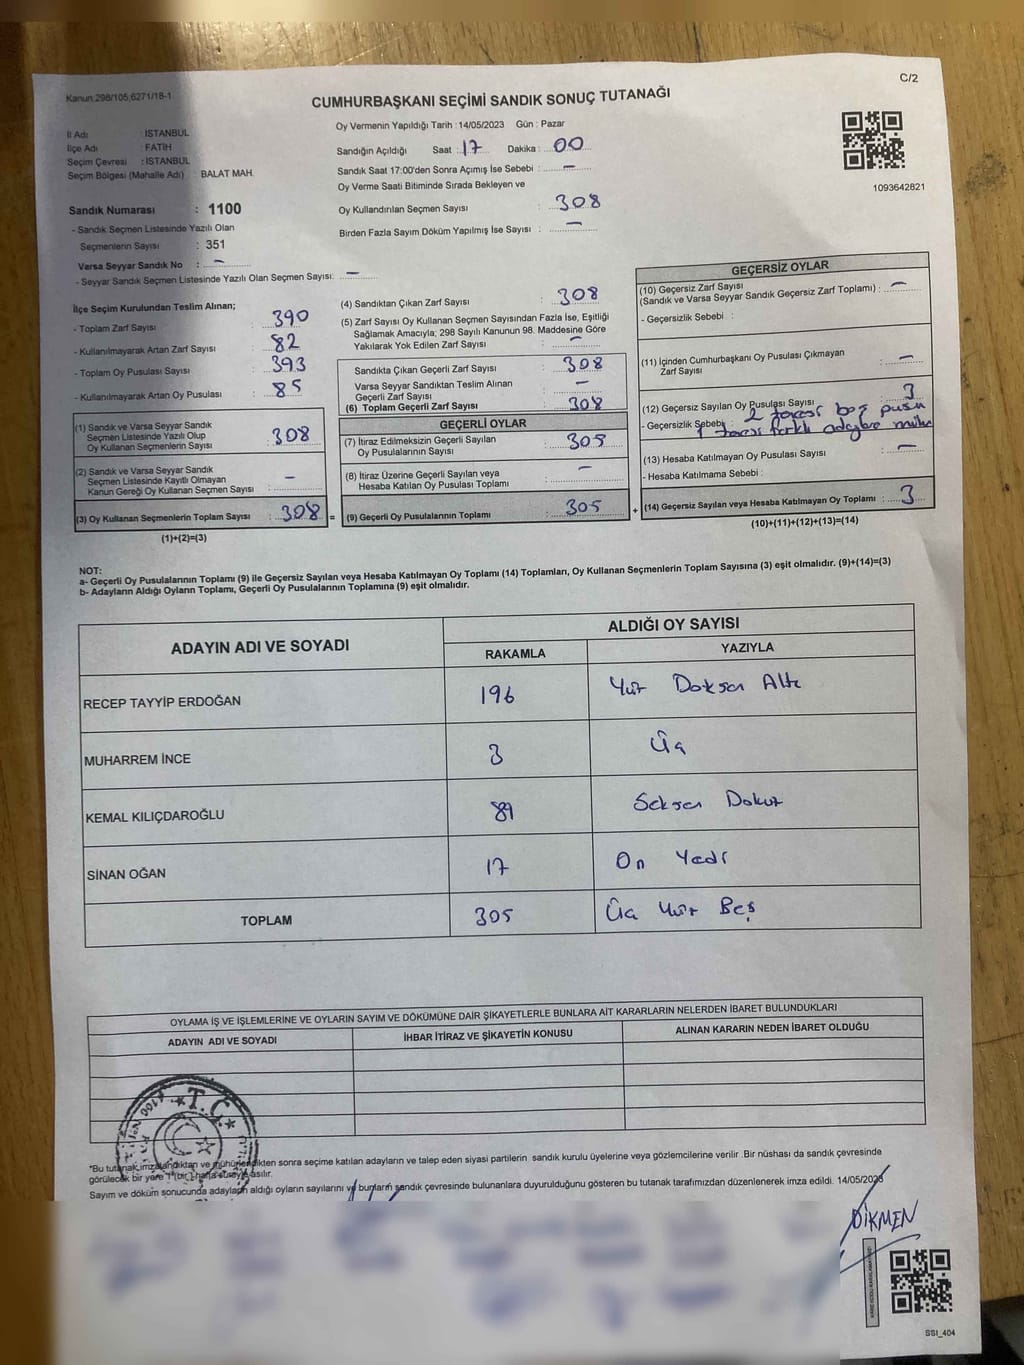 C/2
Kanun 298/105,6271/18-1
CUMHURBAŞKANI SEÇİMİ SANDIK SONUÇ TUTANAĞI
İl Adı : İSTANBUL
İlçe Adı : FATİH
Seçim Çevresi : İSTANBUL
Seçim Bölgesi (Mahalle Adı) : BALAT MAH.
Sandık Numarası : 1100
- Sandık Seçmen Listesinde Yazılı Olan
Seçmenlerin Sayısı : 351
Varsa Seyyar Sandık No : –
- Seyyar Sandık Seçmen Listesinde Yazılı Olan Seçmen Sayısı: –
Oy Vermenin Yapıldığı Tarih : 14/05/2023 Gün : Pazar
Sandığın Açıldığı Saat : 17 Dakika : 00
Sandık Saat 17:00'den Sonra Açımış İse Sebebi : –
Oy Verme Saati Bitiminde Sırada Bekleyen ve
Oy Kullandırılan Seçmen Sayısı : 308
Birden Fazla Sayım Döküm Yapılmış İse Sayısı : –
1093642821
İlçe Seçim Kurulundan Teslim Alınan;
- Toplam Zarf Sayısı : 390
- Kullanılmayarak Artan Zarf Sayısı : 82
- Toplam Oy Pusulası Sayısı : 393
- Kullanılmayarak Artan Oy Pusulası : 85
(1) Sandık ve Varsa Seyyar Sandık
Seçmen Listesinde Yazılı Olup
Oy Kullanan Seçmenlerin Sayısı : 308
(2) Sandık ve Varsa Seyyar Sandık
Seçmen Listesinde Kayıtlı Olmayan
Kanun Gereği Oy Kullanan Seçmen Sayısı : –
(3) Oy Kullanan Seçmenlerin Toplam Sayısı : 308 =
(1)+(2)=(3)
(4) Sandıktan Çıkan Zarf Sayısı : 308
(5) Zarf Sayısı Oy Kullanan Seçmen Sayısından Fazla İse, Eşitliği
Sağlamak Amacıyla; 298 Sayılı Kanunun 98. Maddesine Göre
Yakılarak Yok Edilen Zarf Sayısı : –
Sandıkta Çıkan Geçerli Zarf Sayısı : 308
Varsa Seyyar Sandıktan Teslim Alınan
Geçerli Zarf Sayısı : –
(6) Toplam Geçerli Zarf Sayısı : 308
GEÇERLİ OYLAR
(7) İtiraz Edilmeksizin Geçerli Sayılan
Oy Pusulalarının Sayısı : 305
(8) İtiraz Üzerine Geçerli Sayılan veya
Hesaba Katılan Oy Pusulası Toplamı : –
(9) Geçerli Oy Pusulalarının Toplamı : 305 +
GEÇERSİZ OYLAR
(10) Geçersiz Zarf Sayısı
(Sandık ve Varsa Seyyar Sandık Geçersiz Zarf Toplamı) : –
- Geçersizlik Sebebi :
(11) İçinden Cumhurbaşkanı Oy Pusulası Çıkmayan
Zarf Sayısı : –
(12) Geçersiz Sayılan Oy Pusulası Sayısı : 3
- Geçersizlik Sebebi : 2 tanesi boş pusu
1 tanesi farklı adaylara mühür
(13) Hesaba Katılmayan Oy Pusulası Sayısı : –
- Hesaba Katılmama Sebebi :
(14) Geçersiz Sayılan veya Hesaba Katılmayan Oy Toplamı : 3
(10)+(11)+(12)+(13)=(14)
NOT:
a- Geçerli Oy Pusulalarının Toplamı (9) ile Geçersiz Sayılan veya Hesaba Katılmayan Oy Toplamı (14) Toplamları, Oy Kullanan Seçmenlerin Toplam Sayısına (3) eşit olmalıdır. (9)+(14)=(3)
b- Adayların Aldığı Oyların Toplamı, Geçerli Oy Pusulalarının Toplamına (9) eşit olmalıdır.
ADAYIN ADI VE SOYADI ALDIĞI OY SAYISI
RAKAMLA YAZIYLA
RECEP TAYYİP ERDOĞAN 196 Yüz Doksan Altı
MUHARREM İNCE 3 Üç
KEMAL KILIÇDAROĞLU 89 Seksen Dokuz
SİNAN OĞAN 17 On Yedi
TOPLAM 305 Üç Yüz Beş
OYLAMA İŞ VE İŞLEMLERİNE VE OYLARIN SAYIM VE DÖKÜMÜNE DAİR ŞİKAYETLERLE BUNLARA AİT KARARLARIN NELERDEN İBARET BULUNDUKLARI
ADAYIN ADI VE SOYADI İHBAR İTİRAZ VE ŞİKAYETİN KONUSU ALINAN KARARIN NEDEN İBARET OLDUĞU
T.C.
*Bu tutanak imzalandıktan ve mühürlendikten sonra seçime katılan adayların ve talep eden siyasi partilerin sandık kurulu üyelerine veya gözlemcilerine verilir .Bir nüshası da sandık çevresinde
görülecek bir yere 1 (bir) hafta süreyle asılır.
Sayım ve döküm sonucunda adayların aldığı oyların sayılarını ve bunların sandık çevresinde bulunanlara duyurulduğunu gösteren bu tutanak tarafımızdan düzenlenerek imza edildi. 14/05/2023
DİKMEN
SSI_404